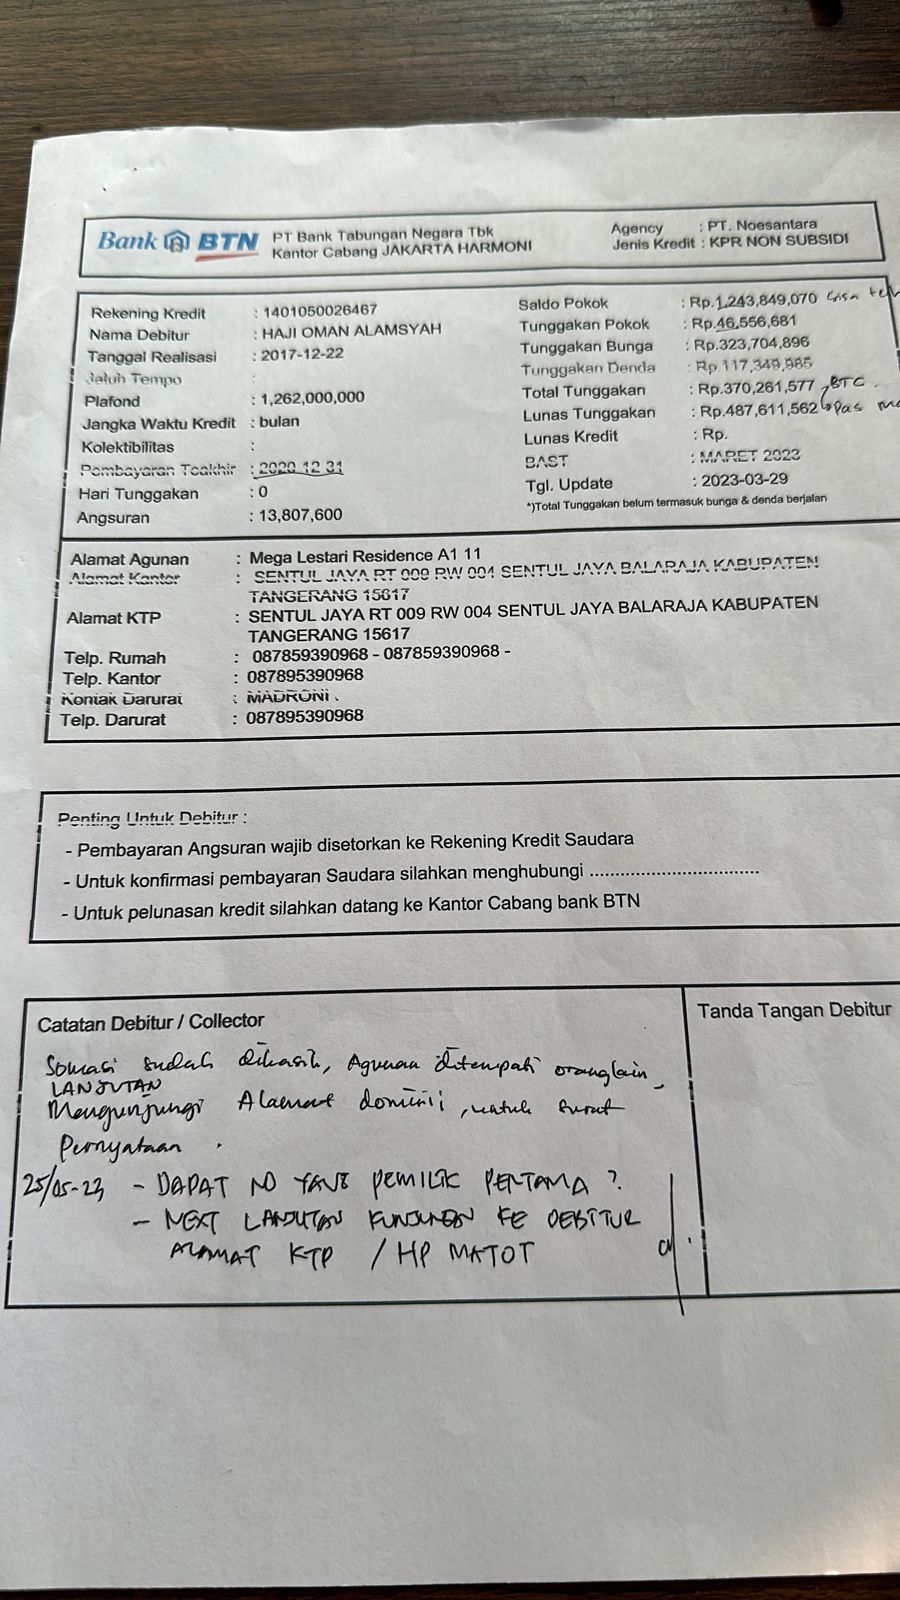 Bank BTN
PT Bank Tabungan Negara Tbk
Kantor Cabang JAKARTA HARMONI
Agency : PT. Noesantara
Jenis Kredit : KPR NON SUBSIDI
Rekening Kredit : 1401050026467
Nama Debitur : HAJI OMAN ALAMSYAH
Tanggal Realisasi : 2017-12-22
Jatuh Tempo :
Plafond : 1,262,000,000
Jangka Waktu Kredit : bulan
Kolektibilitas :
Pembayaran Teakhir : 2020-12-31
Hari Tunggakan : 0
Angsuran : 13,807,600
Saldo Pokok : Rp.1,243,849,070
Tunggakan Pokok : Rp.46,556,681
Tunggakan Bunga : Rp.323,704,896
Tunggakan Denda : Rp.117,349,985
Total Tunggakan : Rp.370,261,577 BTC.
Lunas Tunggakan : Rp.487,611,562
Lunas Kredit : Rp.
BAST : MARET 2023
Tgl. Update : 2023-03-29
*)Total Tunggakan belum termasuk bunga & denda berjalan
Alamat Agunan : Mega Lestari Residence A1 11
Alamat Kantor : SENTUL JAYA RT 009 RW 004 SENTUL JAYA BALARAJA KABUPATEN
TANGERANG 15617
Alamat KTP : SENTUL JAYA RT 009 RW 004 SENTUL JAYA BALARAJA KABUPATEN
TANGERANG 15617
Telp. Rumah : 087859390968 - 087859390968 -
Telp. Kantor : 087895390968
Kontak Darurat : MADRONI .
Telp. Darurat : 087895390968
Penting Untuk Debitur :
- Pembayaran Angsuran wajib disetorkan ke Rekening Kredit Saudara
- Untuk konfirmasi pembayaran Saudara silahkan menghubungi ..................................
- Untuk pelunasan kredit silahkan datang ke Kantor Cabang bank BTN
Catatan Debitur / Collector
Tanda Tangan Debitur
Somasi sudah dikasih, Agunan ditempati orang lain
LANJUTAN
Mengunjungi Alamat domisili, untuk surat
Pernyataan .
25/05-23 - DAPAT NO YANG PEMILIK PERTAMA ?
- NEXT LANJUTAN KUNJUNGAN KE DEBITUR
ALAMAT KTP / HP MATOT